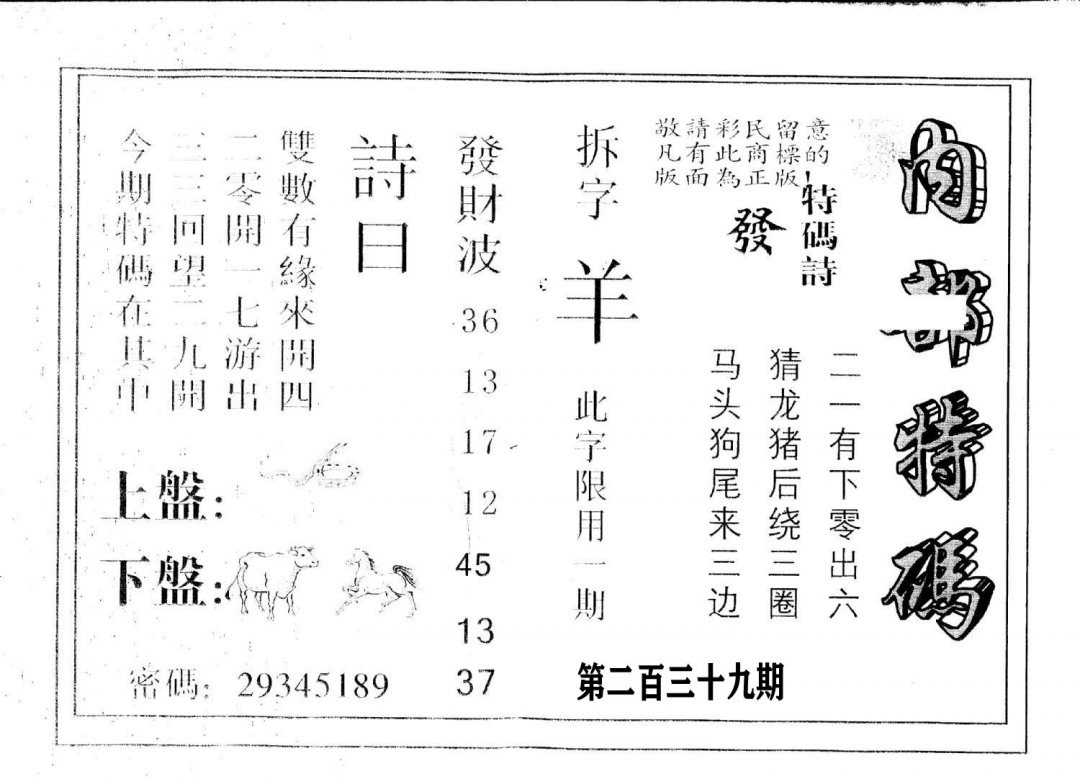 内部特碼
敬請彩民留意
凡有此商標的
版面為正版
特碼詩
發
二一有下零出六
猜龙猪后绕三圈
马头狗尾来三边
拆字
羊
此字限用一期
第二百三十九期
發財波
36
13
17
12
45
13
37
詩曰
雙數有緣來開四
二零開一七游出
三三回望二九開
今期特碼在其中
上盤:
下盤:
密碼: 29345189